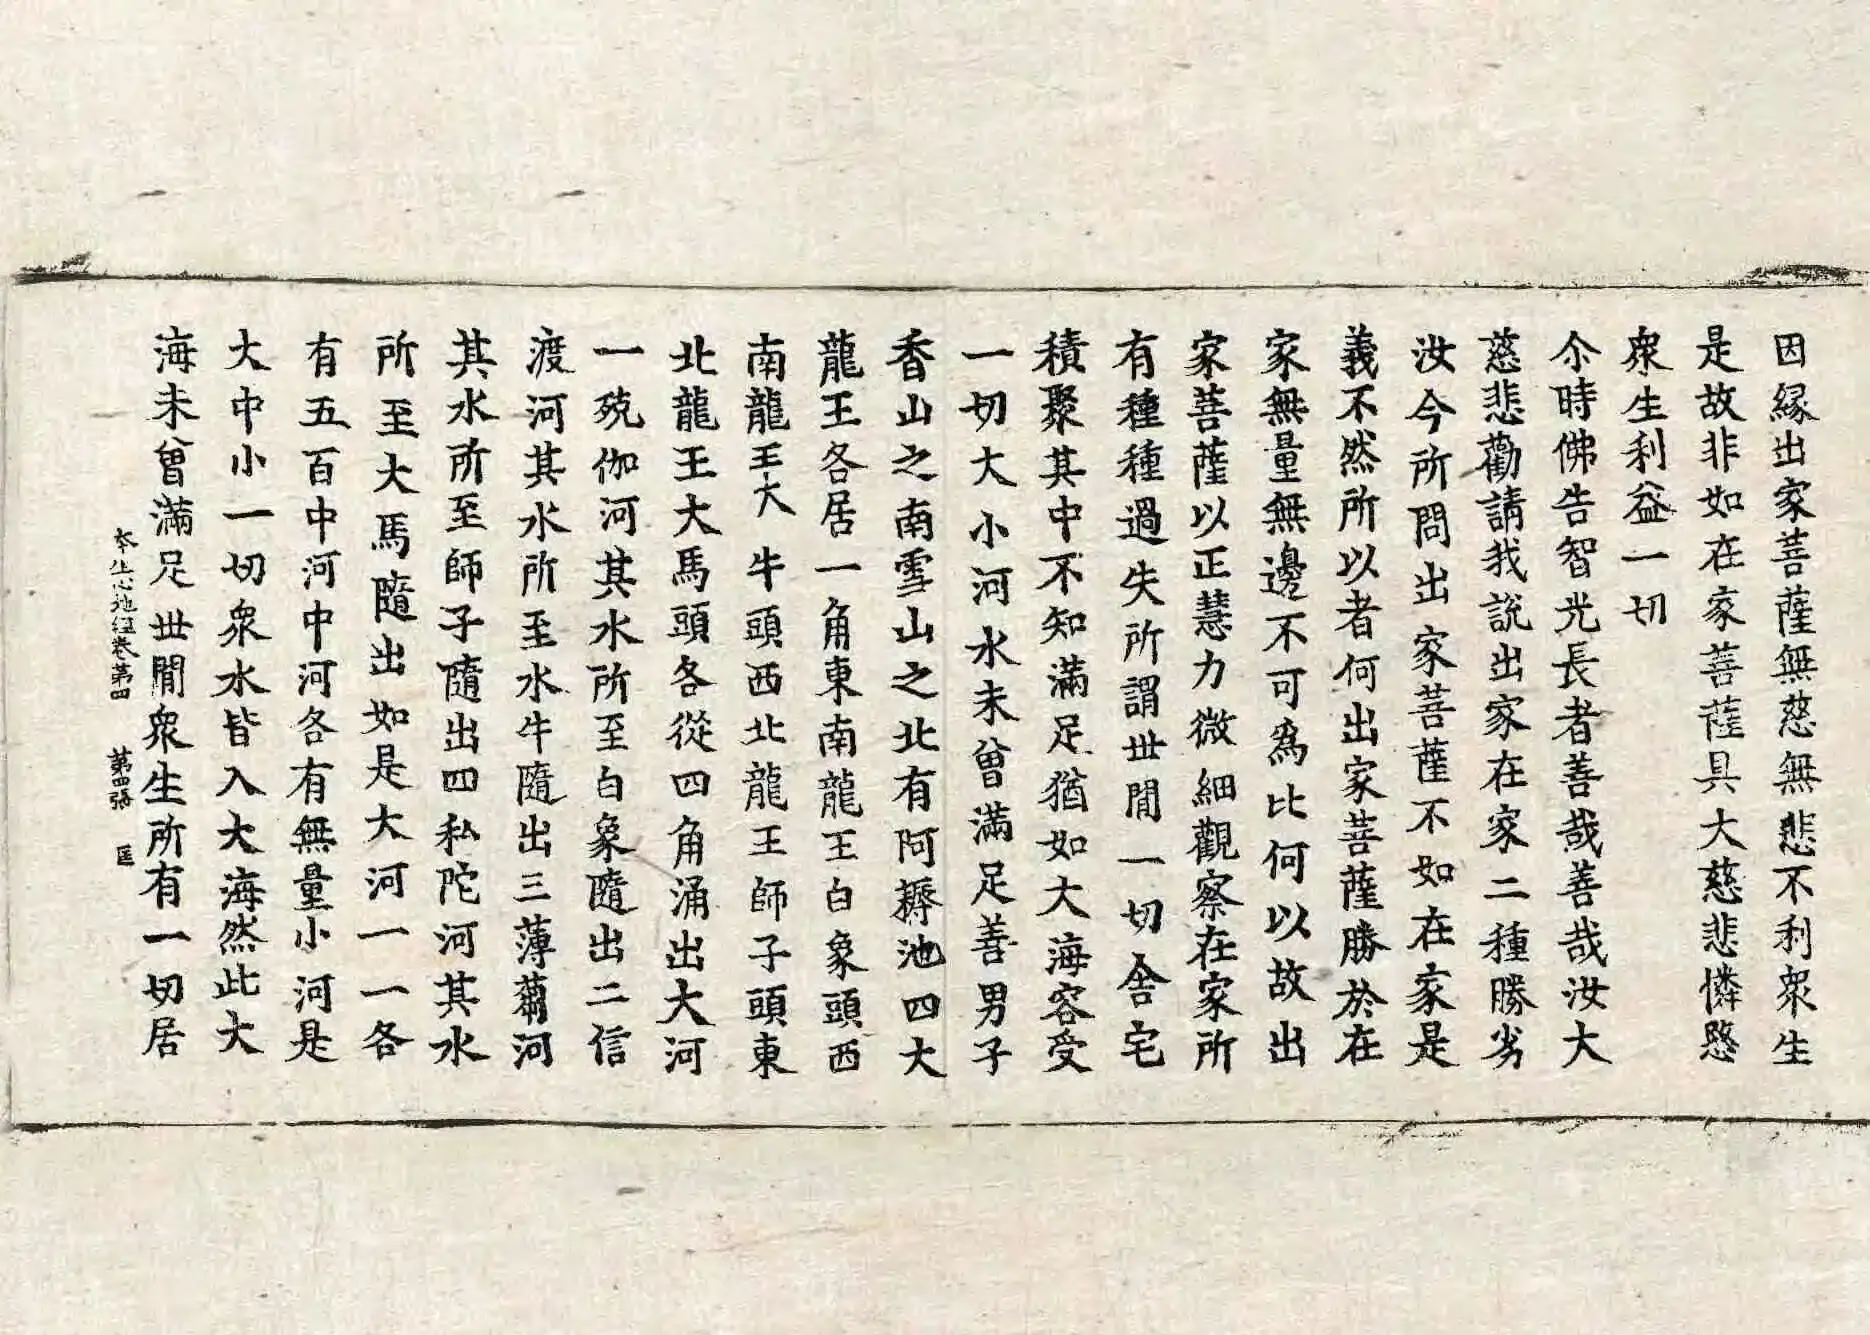 因緣出家菩薩無慈無悲不利衆生
是故非如在家菩薩具大慈悲憐愍
衆生利益一切
尒時佛告智光長者善哉善哉汝大
慈悲勸請我說出家在家二種勝劣
汝今所問出家菩薩不如在家是
義不然所以者何出家菩薩勝於在
家無量無邊不可為比何以故出
家菩薩以正慧力微細觀察在家所
有種種過失所謂世間一切舍宅
積聚其中不知滿足猶如大海容受
一切大小河水未曾滿足善男子
香山之南雪山之北有阿耨池四大
龍王各居一角東南龍王白象頭西
南龍王大牛頭西北龍王師子頭東
北龍王大馬頭各從四角涌出大河
一殑伽河其水所至白象隨出二信
渡河其水所至水牛隨出三薄蒭河
其水所至師子隨出四私陀河其水
所至大馬隨出如是大河一一各
有五百中河中河各有無量小河是
大中小一切衆水皆入大海然此大
海未曾滿足世間衆生所有一切居
本生心地經卷第四 第四張 匡